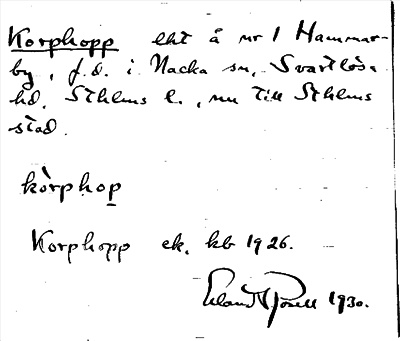 Korphopp lht å nr 1 Hammar-
by, f.d. i Nacka sn, Svartlösa
hd, Sthlms l., nu till Sthlms
stad.
kòrphop
Korphopp ek. kb 1926.
Erland Rosell 1930.